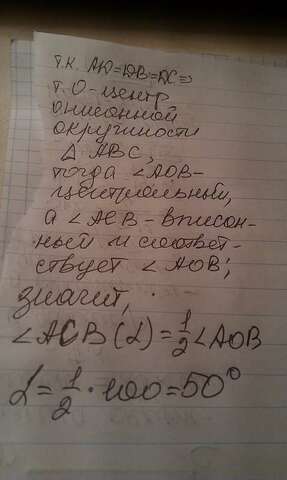 т.к. АО=ОВ=ОС⇒
т. О-центр
описонной
окружности
Δ АВС,
тогда ∠АОВ-
центрольный,
а ∠АСВ-вписон-
ный и соответ-
ствует ∠АОВ;
значит,
∠АСВ(α)=1/2∠АОВ
α=1/2·100=50°